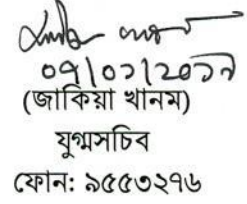 ০৭/০১/২০১৭
(জাকিয়া খানম)
যুগ্মসচিব
ফোন: ৯৫৫৩২৭৬